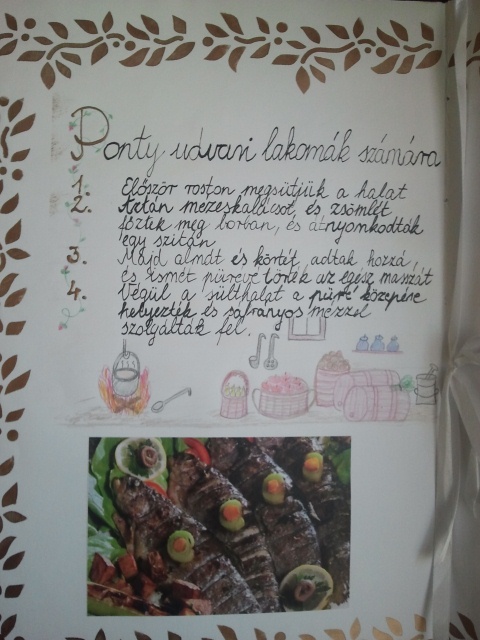 Ponty udvari lakomák számára
1. Először roston megsütjük a halat
2. Aztán mézeskalácsot, és zsömlét
főztek meg borban, és átnyomkodták
egy szitán
3. Majd almát és körtét, adtak hozzá,
és ismét pürévé törték az egész masszát
4. Végül a sülthalat a püré közepére
helyezték és sáfrányos mézzel
szolgálták fel.